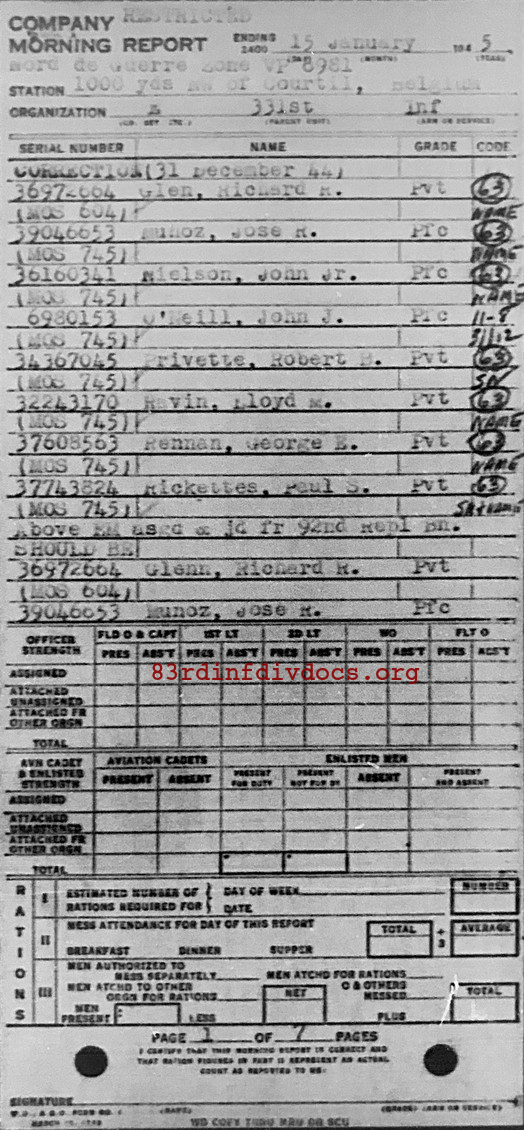 RESTRICTED
COMPANY
MORNING REPORT ENDING 2400 15 January 194 5
(DAY) (MONTH) (YEAR)
Nord de Guerre Zone VP 8981
STATION 1000 yds NW of Courtil, Belgium
ORGANIZATION E 331st Inf
(CO. DET. ETC.) (PARENT UNIT) (ARM OR SERVICE)
SERIAL NUMBER NAME GRADE CODE
CORRECTION(31 December 44)
36972664 Glen, Richard R. Pvt 63
(MOS 604) NAME
39046653 Munoz, Jose R. Pfc 63
(MOS 745) NAME
36160341 Nielson, John Jr. Pfc 63
(MOS 745) NAME
6980153 O'Neill, John J. Pfc 11-8
(MOS 745)
34367045 Privette, Robert B. Pvt 63
(MOS 745) SN
32243170 Ravin, Lloyd M. Pvt 63
(MOS 745) NAME
37608563 Rennan, George E. Pvt 63
(MOS 745) NAME
37743824 Rickettes, Paul S. Pvt 63
(MOS 745) SN+NAME
Above EM asgd & jd fr 92nd Repl Bn.
SHOULD BE
36972664 Glenn, Richard R. Pvt
(MOS 604)
39046653 Munoz, Jose R. Pfc
OFFICER STRENGTH FLD O & CAPT 1ST LT 2D LT WO FLT O
PRES ABS'T PRES ABS'T PRES ABS'T PRES ABS'T PRES ABS'T
ASSIGNED
83rdinfdivdocs.org
ATTACHED UNASSIGNED
ATTACHED FR OTHER ORGN
TOTAL
AVN CADET & ENLISTED STRENGTH AVIATION CADETS ENLISTED MEN
PRESENT ABSENT PRESENT FOR DUTY PRESENT NOT FOR DY ABSENT PRESENT AND ABSENT
ASSIGNED
ATTACHED UNASSIGNED
ATTACHED FR OTHER ORGN
TOTAL
RATIONS
I ESTIMATED NUMBER OF RATIONS REQUIRED FOR DAY OF WEEK DATE NUMBER
II MESS ATTENDANCE FOR DAY OF THIS REPORT TOTAL ÷ 3 AVERAGE
BREAKFAST DINNER SUPPER
III MEN AUTHORIZED TO MESS SEPARATELY MEN ATCHD FOR RATIONS
MEN ATCHD TO OTHER ORGN FOR RATIONS NET O & OTHERS MESSED TOTAL
MEN PRESENT LESS PLUS
PAGE 1 OF 7 PAGES
I CERTIFY THAT THIS MORNING REPORT IS CORRECT AND
THAT RATION FIGURES IN PART III REPRESENT AN ACTUAL
COUNT AS REPORTED TO ME:
SIGNATURE
(NAME) (GRADE) (ARM OR SERVICE)
W.D., A.G.O. FORM NO. 1
WD COPY THRU MRU OR SCU